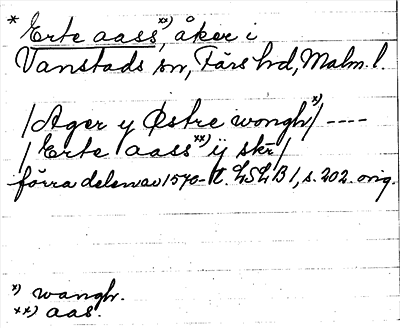 * Erte aass xx), åker i
Vanstads sn, Färs hd, Malm. l.
/Ager y Østre wongh x)/ ----
/ Erte aass xx) ÿ skr/
förra delen av 1570-t. LSLB 1, s. 202. orig.
x) wangh.
xx) aas.